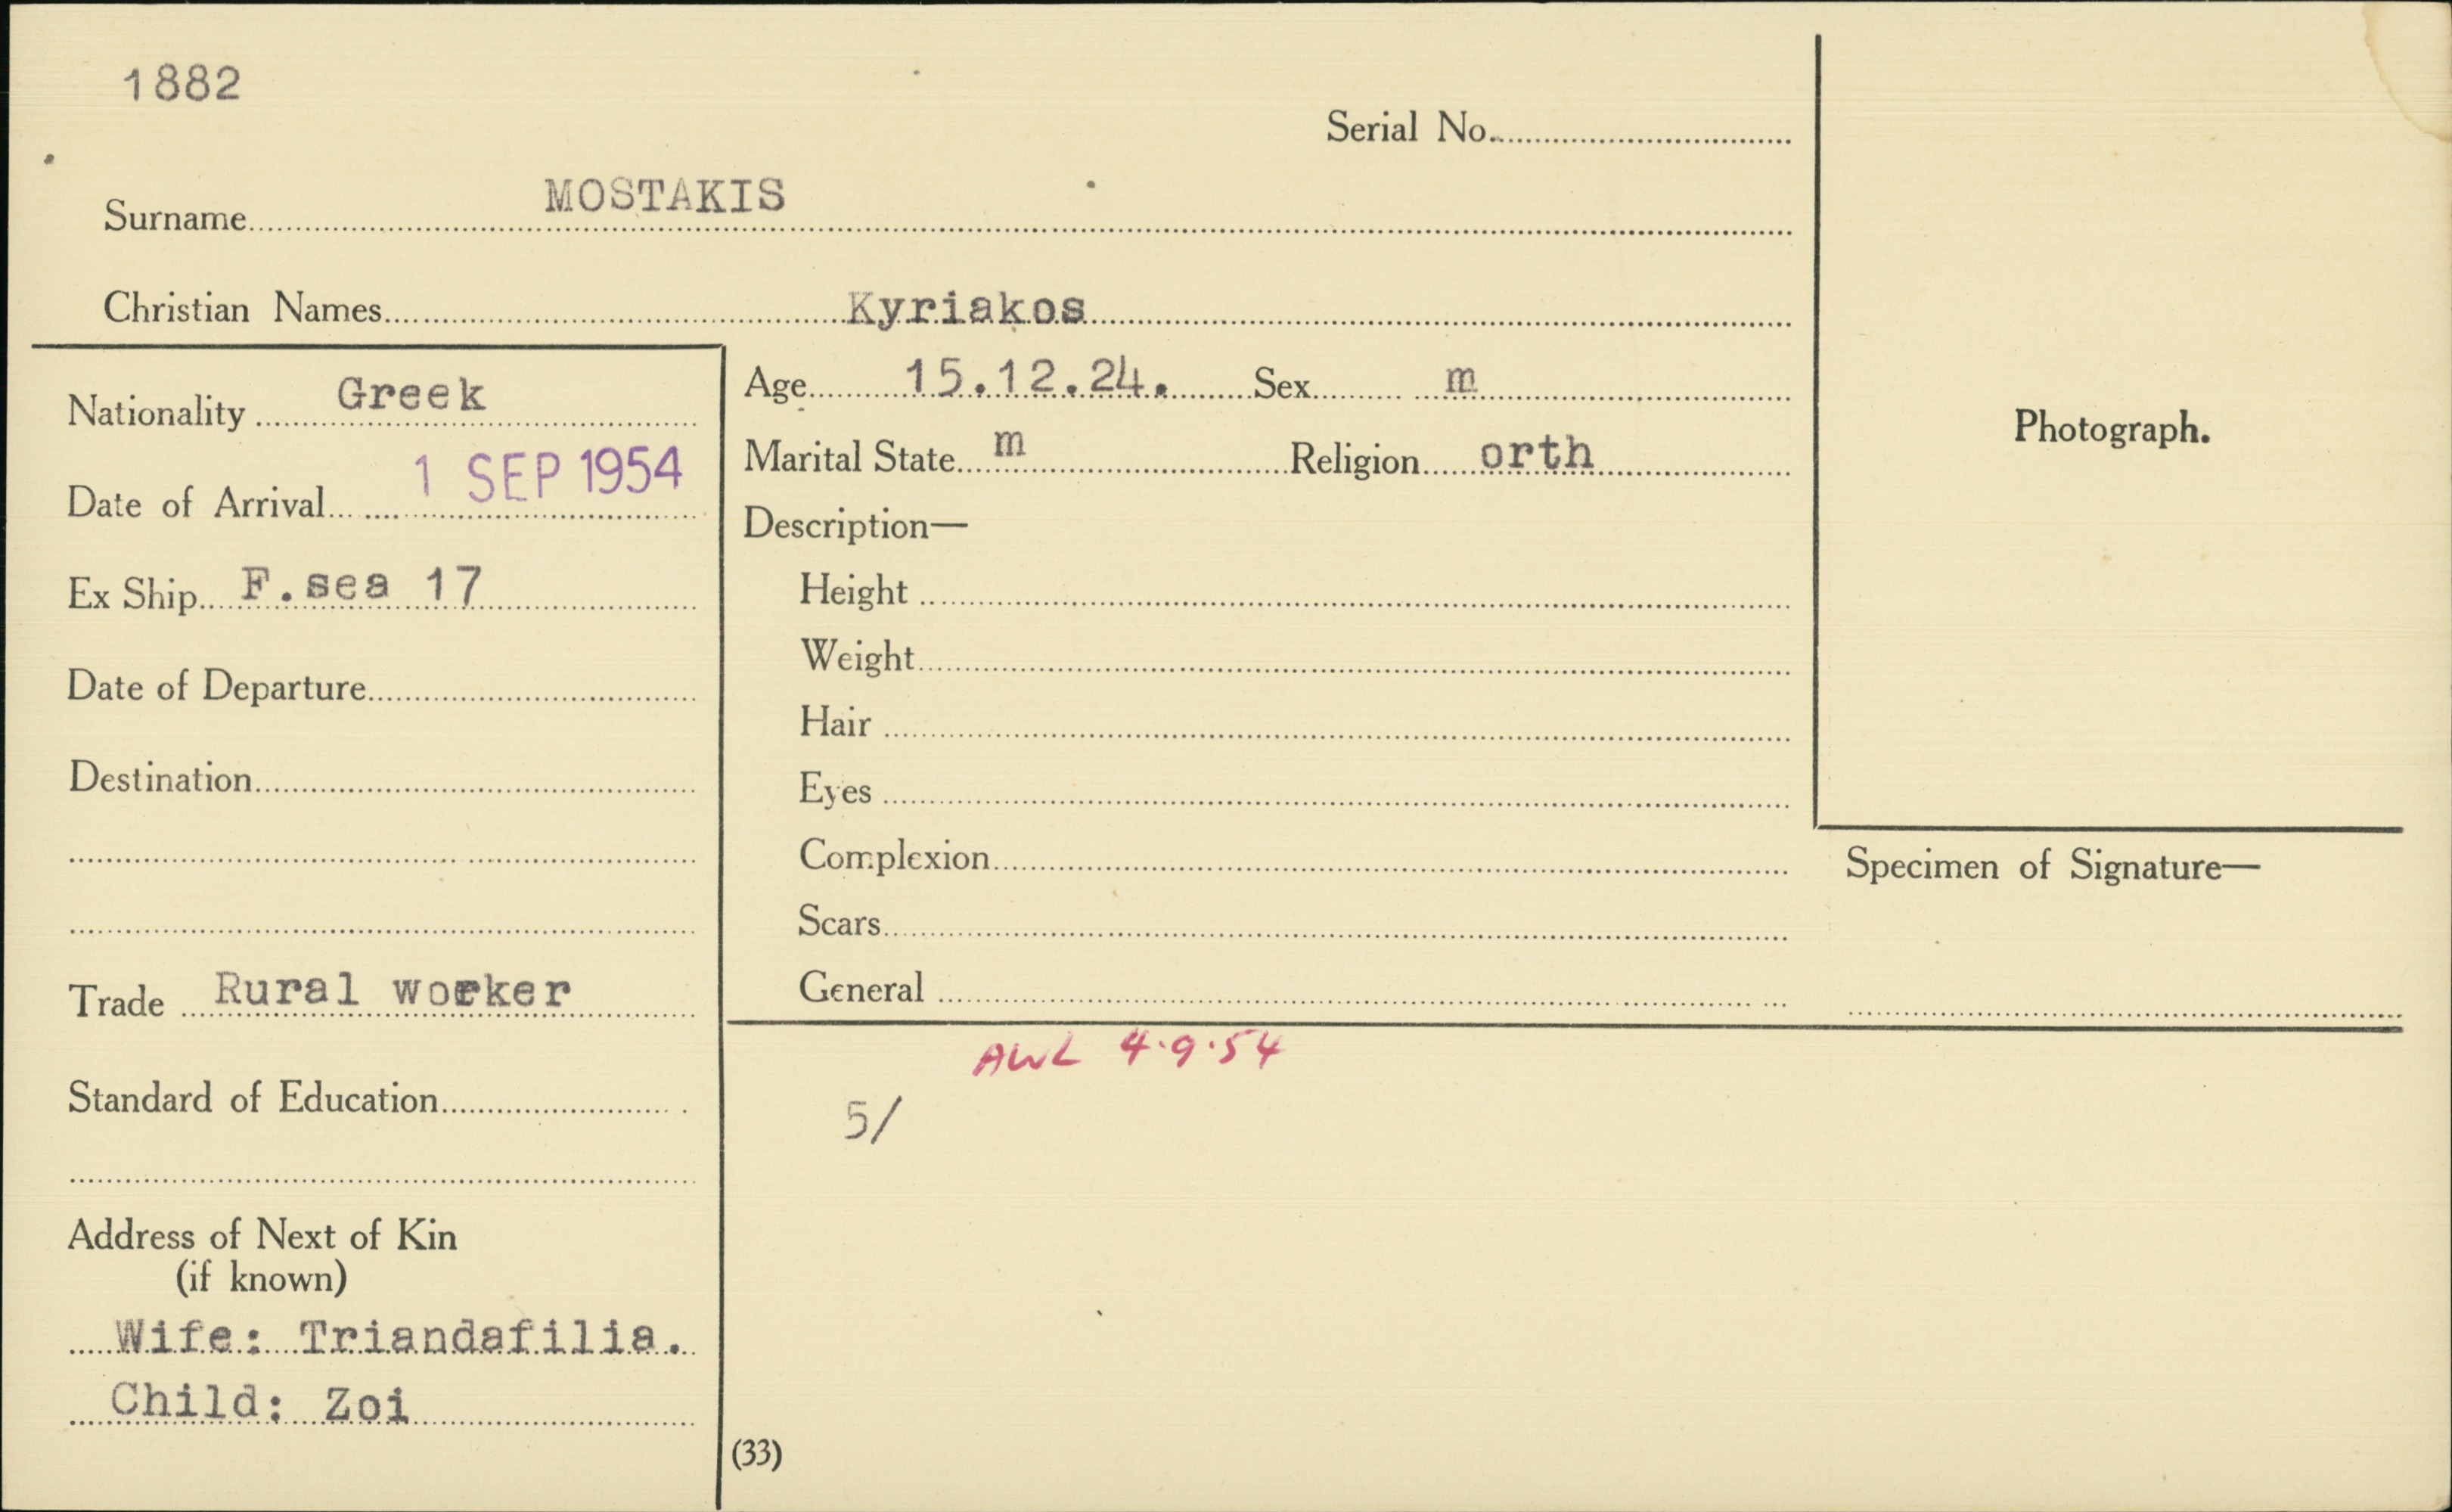 1882
Serial No.
Surname MOSTAKIS
Christian Names Kyriakos
Nationality Greek
Date of Arrival 1 SEP 1954
Ex Ship F.sea 17
Date of Departure
Destination
Trade Rural worker
Standard of Education
Address of Next of Kin
(if known)
Wife: Triandafilia.
Child: Zoi
Age 15.12.24. Sex m
Marital State m Religion orth
Description—
Height
Weight
Hair
Eyes
Complexion
Scars
General
AWL 4.9.54
5/
(33)
Photograph.
Specimen of Signature—